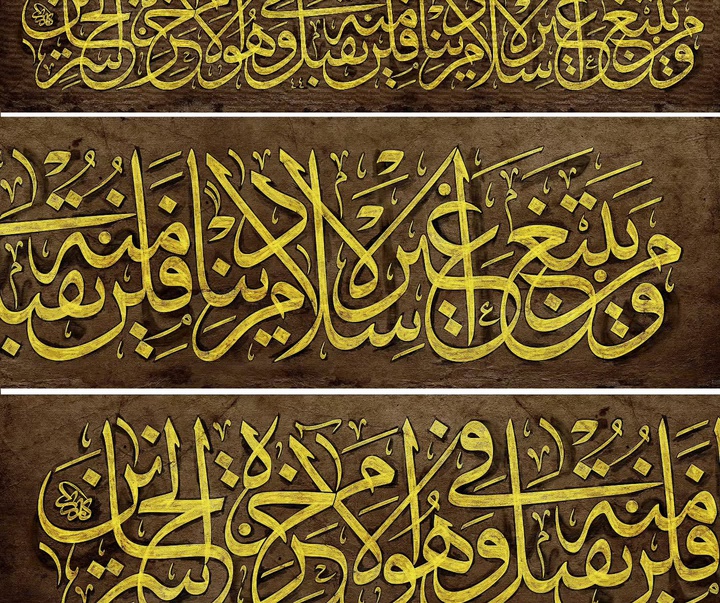 ومن يبتغ غير الإسلام دينا فلن يقبل منه وهو في الآخرة من الخاسرين
ومن يبتغ غير الإسلام دينا فلن يقبل منه
فلن يقبل منه وهو في الآخرة من الخاسرين